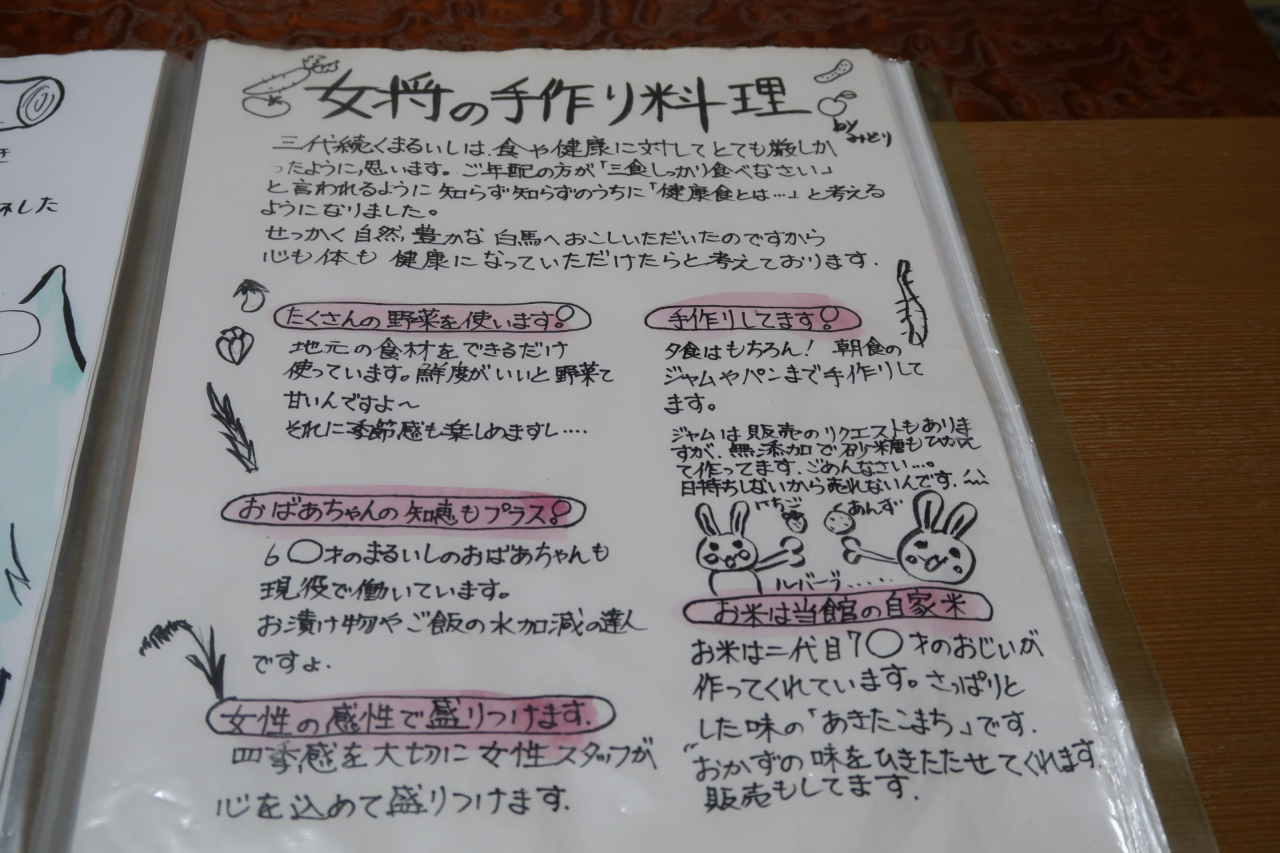 き
ネした
女将の手作り料理
by
みどり
三代続くまるいしは、食や健康に対してとても厳しか
ったように思います。ご年配の方が「三食しっかり食べなさい」
と言われるように知らず知らずのうちに「健康食とは…」と考える
ようになりました。
せっかく自然豊かな白馬へおこしいただいたのですから
心も体も健康になっていただけたらと考えております.
たくさんの野菜を使います!
地元の食材をできるだけ
使っています。鮮度がいいと野菜て
甘いんですよ〜
それに季節感も楽しめますし….
おばあちゃんの知恵もプラス!
6〇才のまるいしのおばあちゃんも
現役で働いています。
お漬け物やご飯の水加減の達人
ですよ.
女性の感性で盛りつけます.
四季感を大切に女性スタッフが
心を込めて盛りつけます.
手作りしてます!
夕食はもちろん! 朝食の
ジャムやパンまで手作りして
ます。
ジャムは販売のリクエストもありま
すが、無添加で砂糖もひかえ
て作ってます.ごめんなさい…。
日持ちしないから売れないんです.^^
いちご
あんず
ルバーブ.....
お米は当館の自家米
お米は二代目7〇才のおじいが
作ってくれています。さっぱりと
した味の「あきたこまち」です.
おかずの味をひきたたせてくれます.
販売もしてます.